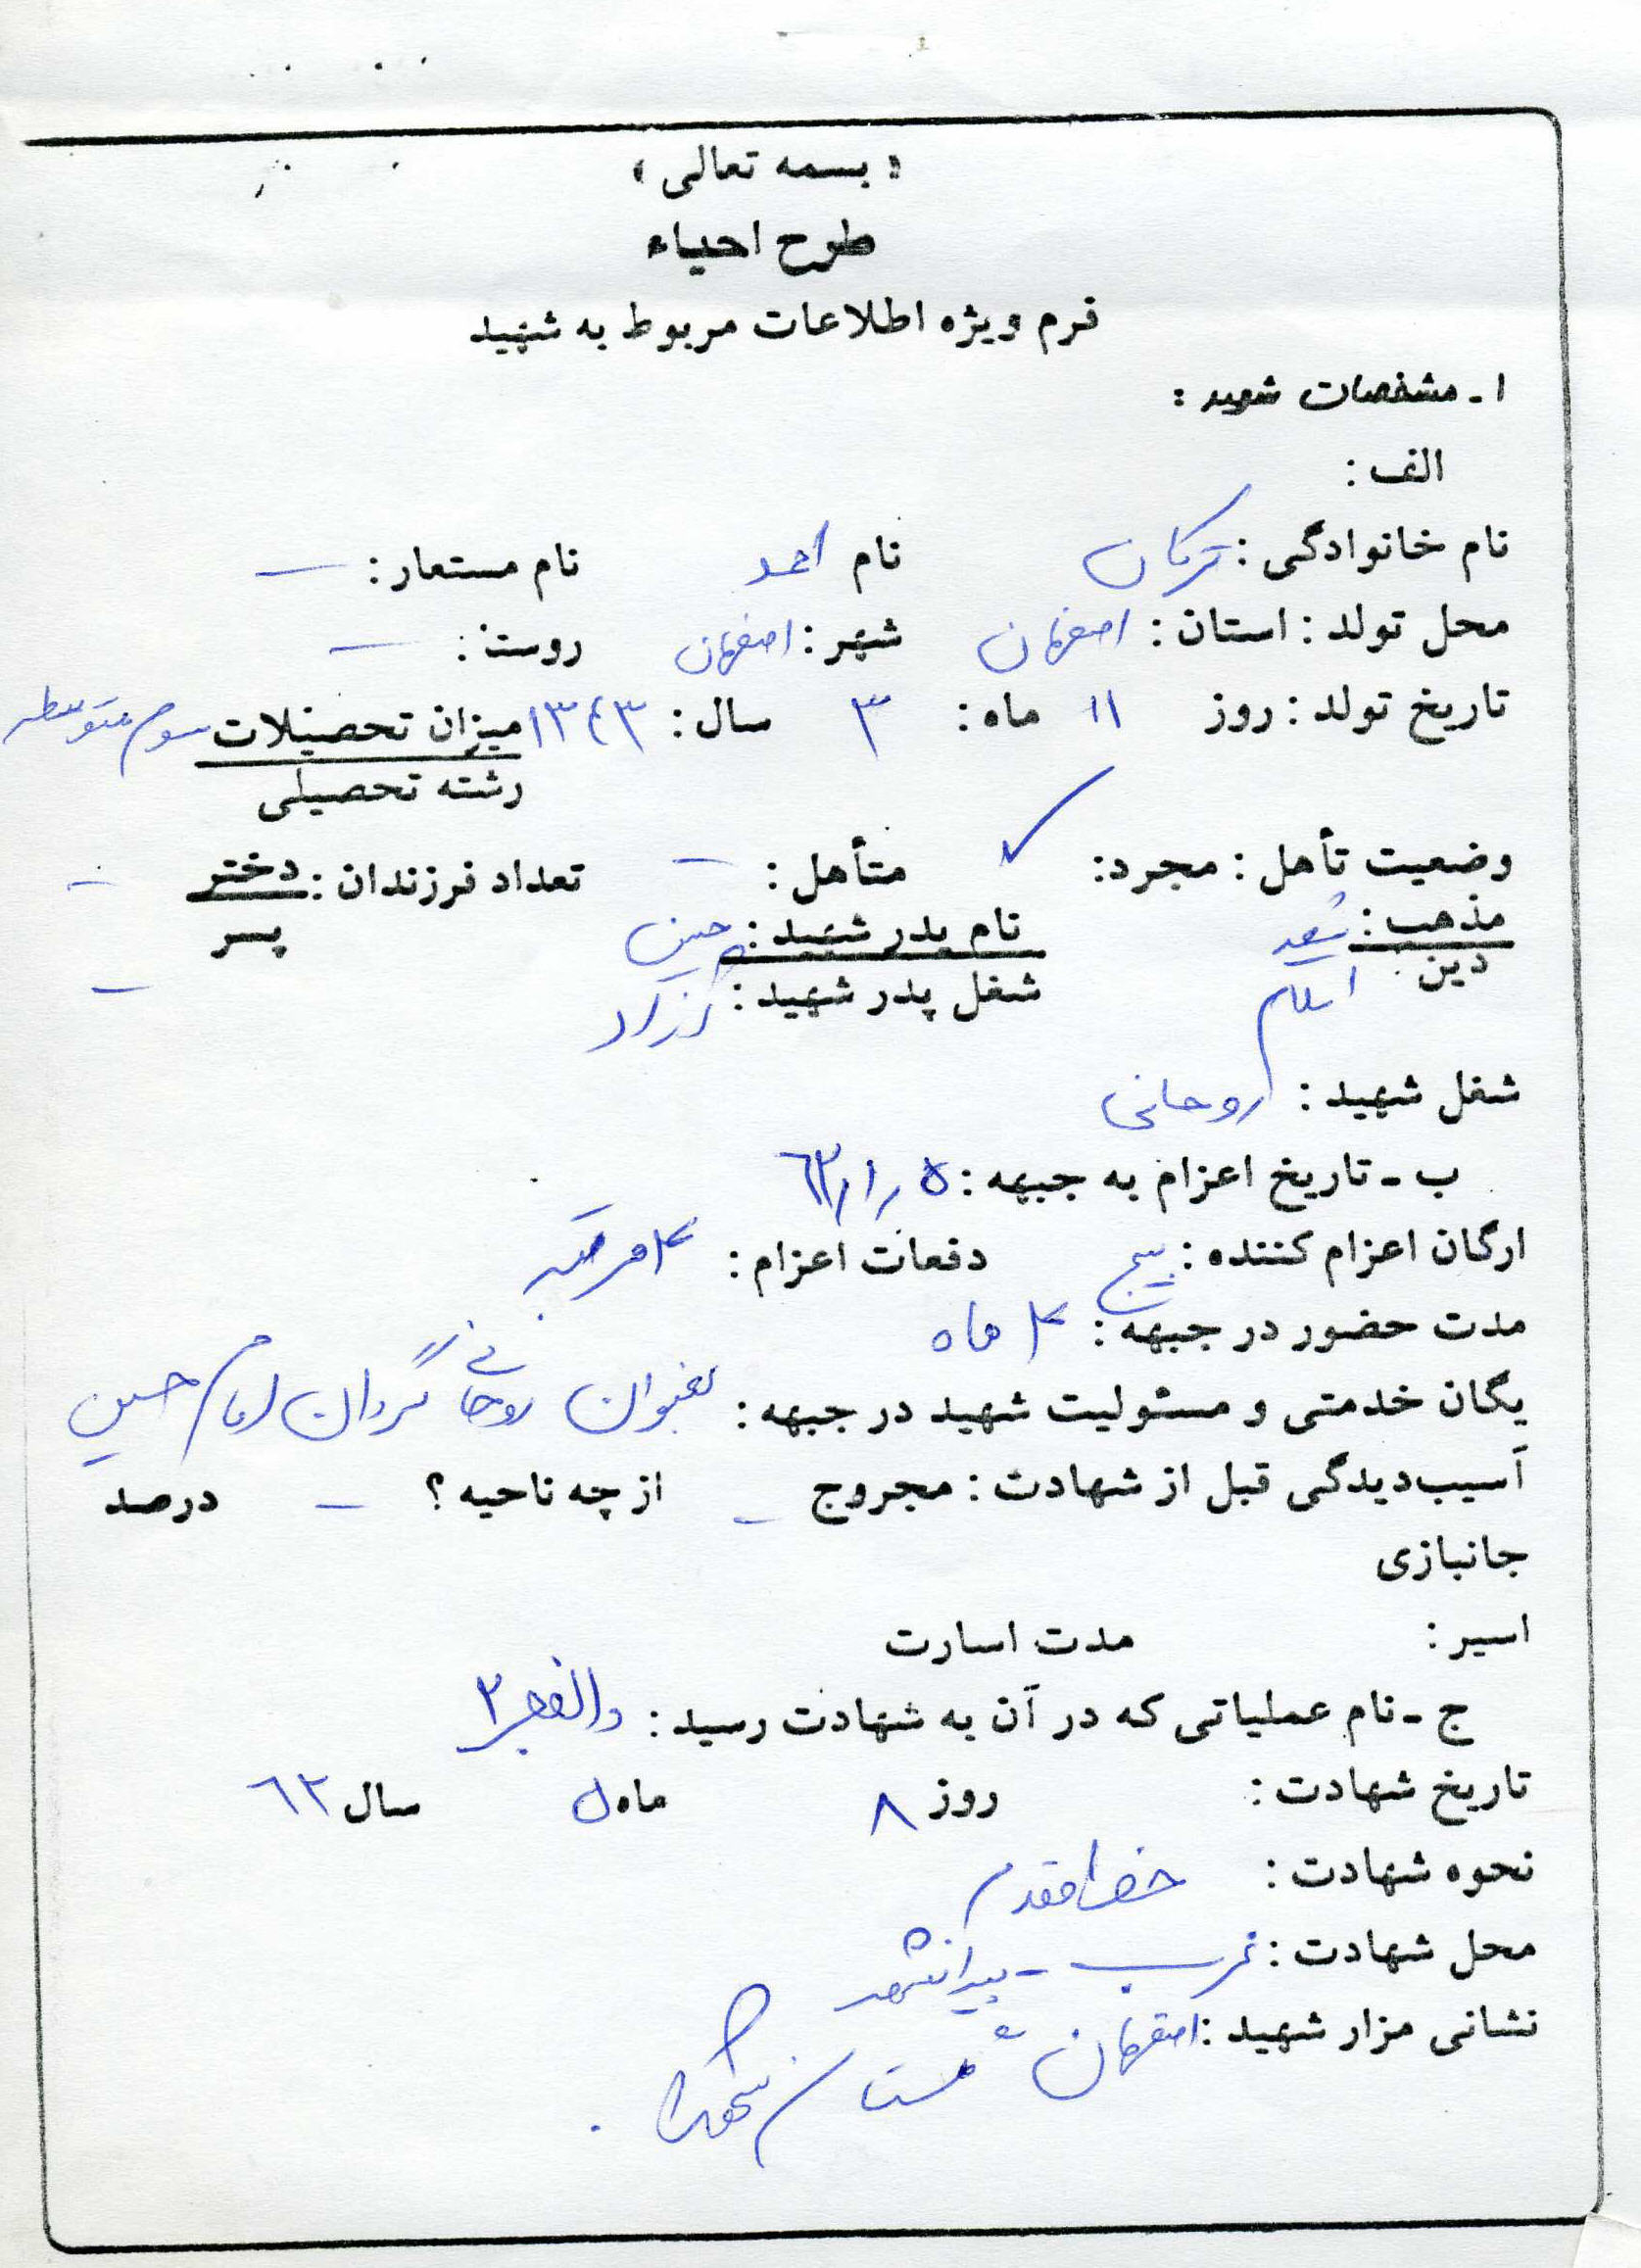 « بسمه تعالی »
طرح احیاء
فرم ویژه اطلاعات مربوط به شهید
۱ ـ مشخصات شهید :
الف :
نام خانوادگی : ترکان نام احمد نام مستعار : ـ
محل تولد : استان : اصفهان شهر : اصفهان روستا : ـ
تاریخ تولد : روز ۱۱ ماه : ۳ سال : ۱۳۴۳ میزان تحصیلات سوم متوسطه
رشته تحصیلی
وضعیت تأهل : مجرد : ✓ متأهل : ـ تعداد فرزندان : دختر ـ
پسر ـ
مذهب : شیعه نام پدر شهید : حسین
دین : اسلام شغل پدر شهید :
شغل شهید : روحانی
ب ـ تاریخ اعزام به جبهه : ۵ ر۱ر۶۲
ارگان اعزام کننده : بسیج دفعات اعزام : ۴ مرتبه
مدت حضور در جبهه : ۴ ماه
یگان خدمتی و مسئولیت شهید در جبهه : بعنوان روحانی گردان امام حسین
آسیب‌دیدگی قبل از شهادت : مجروح ـ از چه ناحیه ؟ ـ درصد
جانبازی
اسیر : مدت اسارت
ج ـ نام عملیاتی که در آن به شهادت رسید : والفجر ۲
تاریخ شهادت : روز ۸ ماه ۵ سال ۶۲
نحوه شهادت : خط مقدم
محل شهادت : غرب ـ پیرانشهر
نشانی مزار شهید : اصفهان گلستان شهدا .